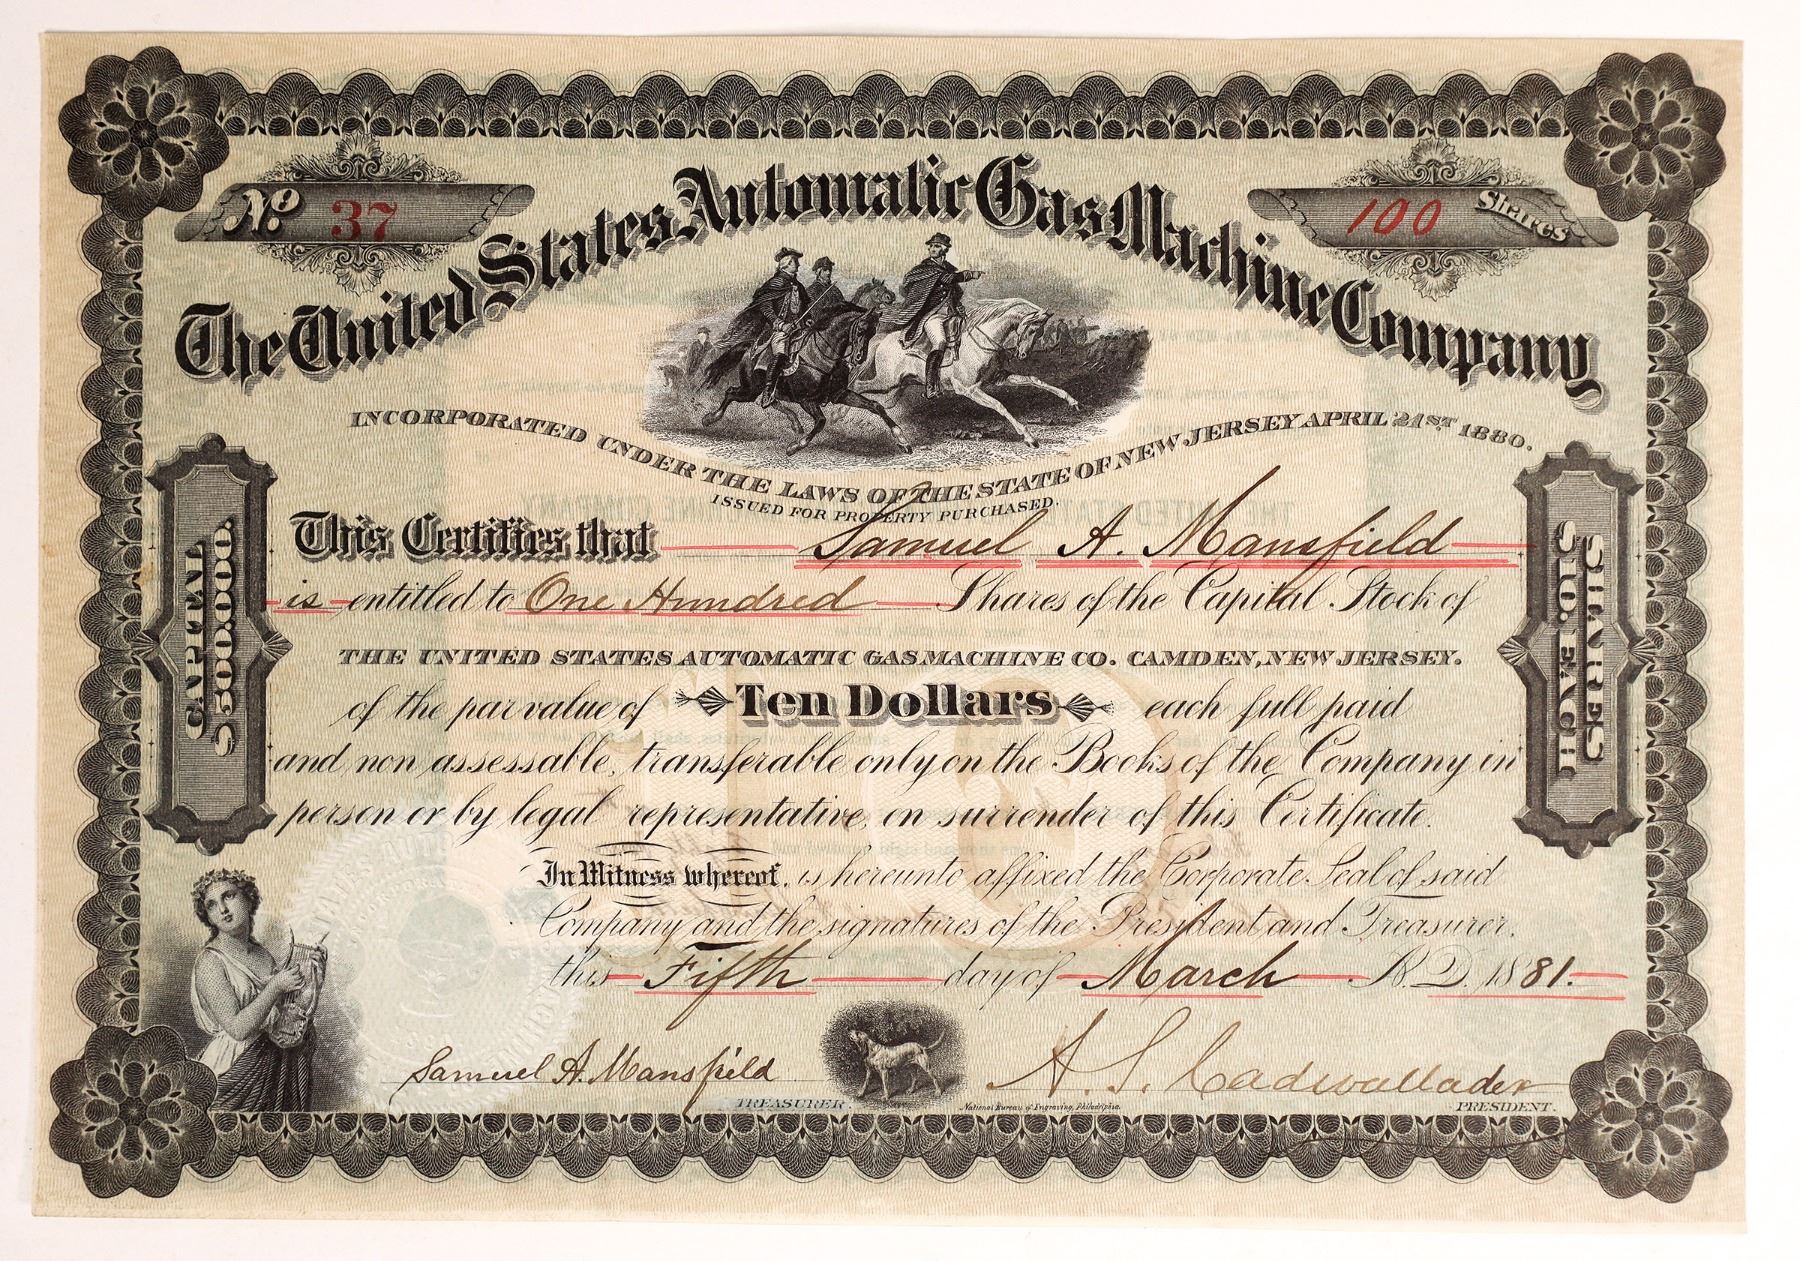 No. 37
100 Shares
The United States Automatic Gas Machine Company
INCORPORATED UNDER THE LAWS OF THE STATE OF NEW JERSEY APRIL 21ST 1880.
ISSUED FOR PROPERTY PURCHASED.
CAPITAL
$500.000.
SHARES
$10. EACH
This Certifies that Samuel A. Mansfield
is entitled to One Hundred Shares of the Capital Stock of
THE UNITED STATES AUTOMATIC GAS MACHINE CO. CAMDEN, NEW JERSEY.
of the par value of Ten Dollars each full paid
and non assessable, transferable only on the Books of the Company in
person or by legal representative, on surrender of this Certificate.
In Witness whereof, is hereunto affixed the Corporate Seal of said
Company and the signatures of the President and Treasurer,
this Fifth day of March A.D. 1881.
Samuel A. Mansfield
TREASURER.
A. S. Cadwallader
PRESIDENT.
National Bureau of Engraving, Philadelphia.